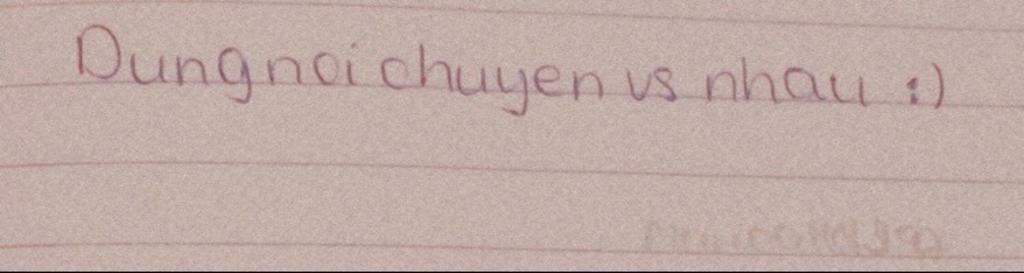 Dung noi chuyen vs nhau :)